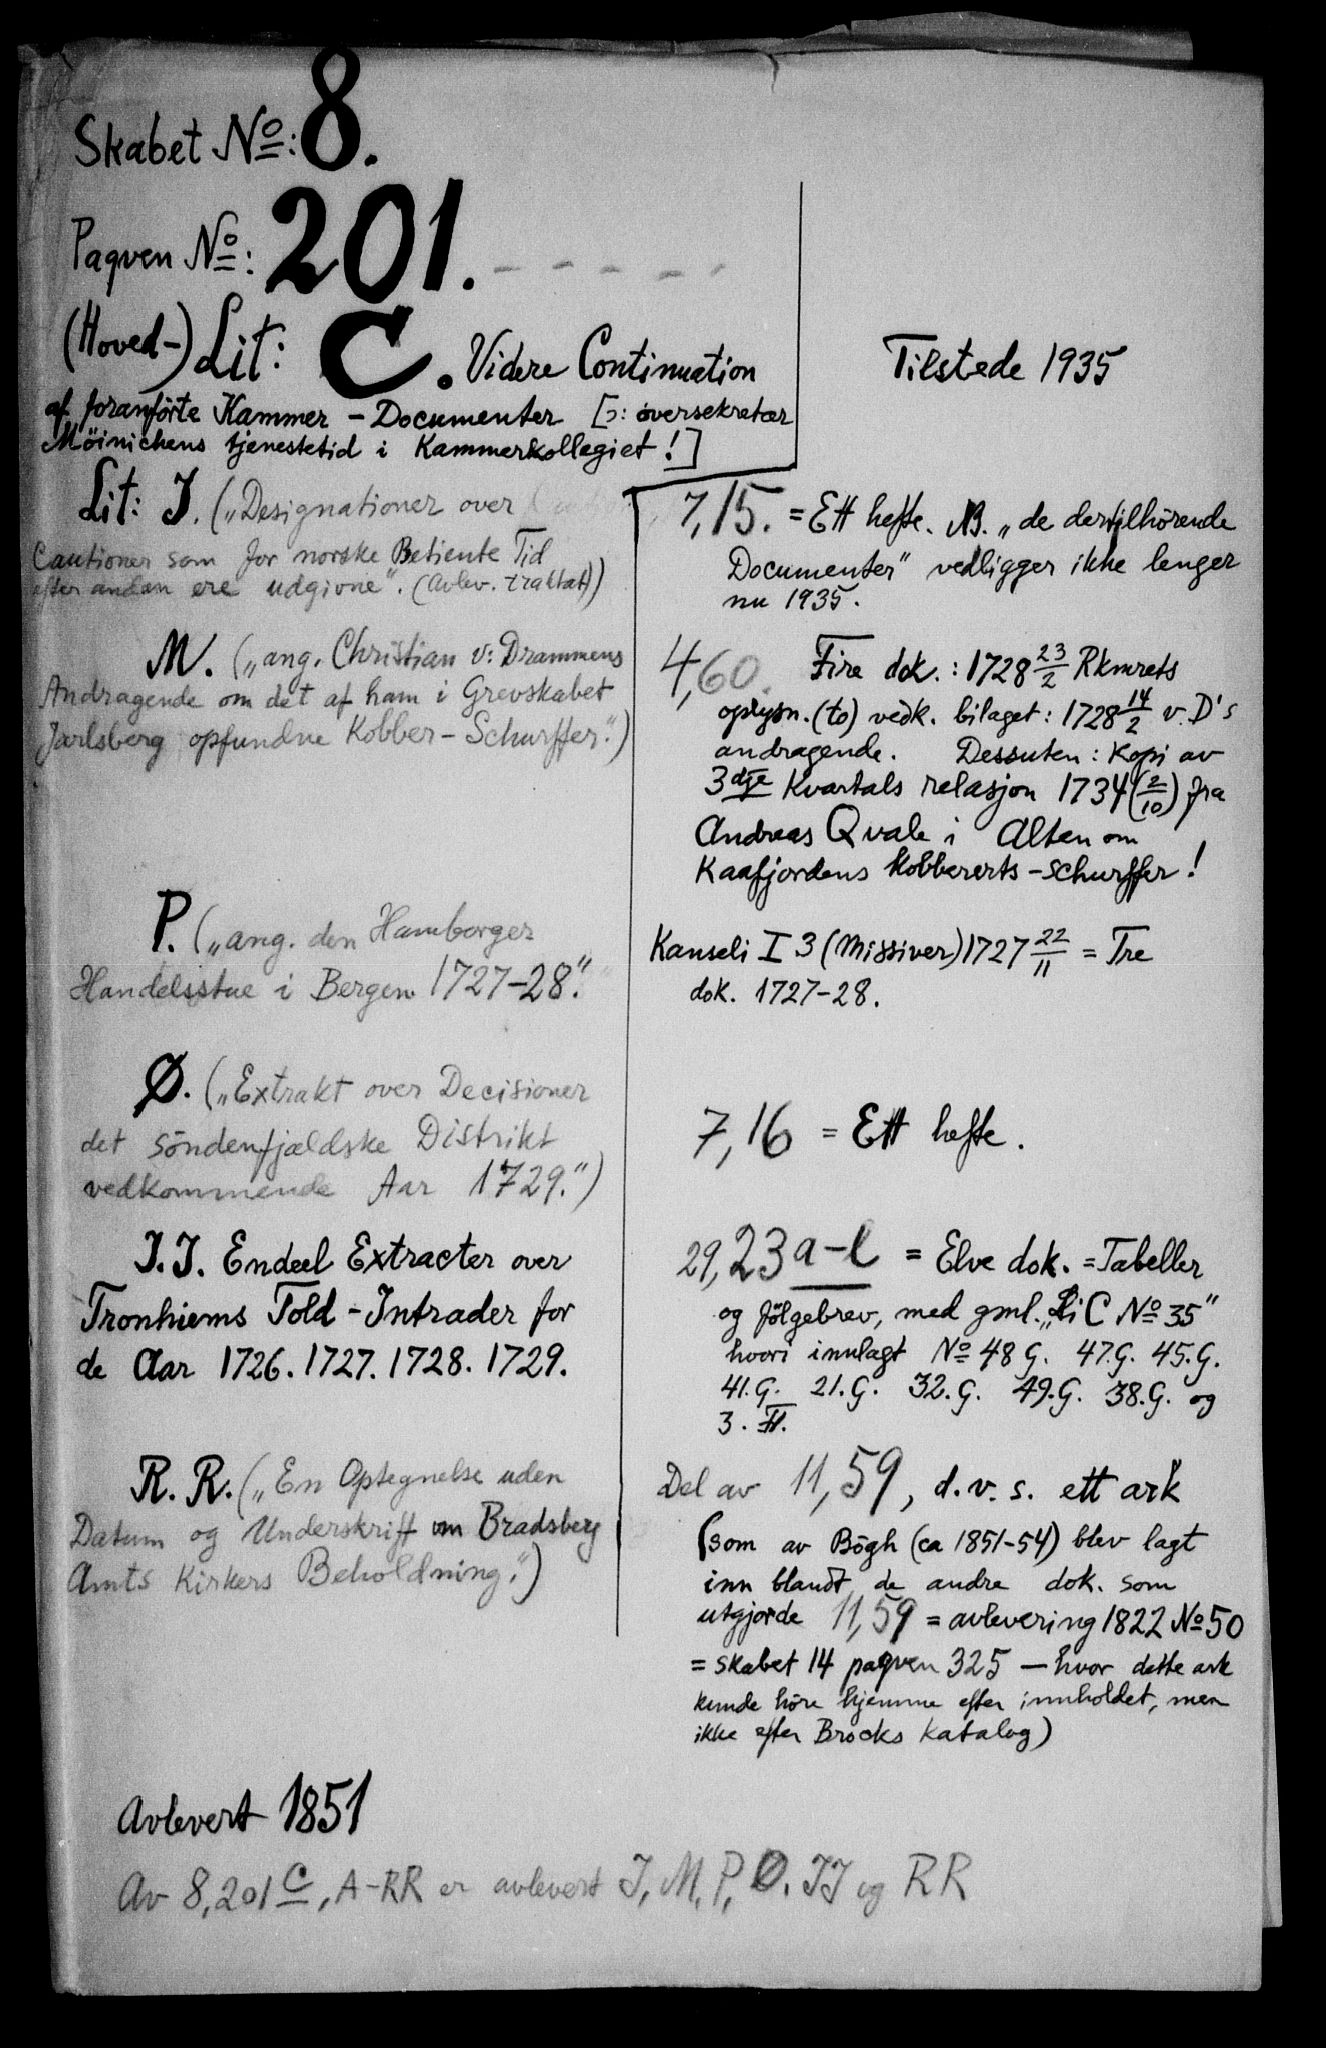 Skabet No: 8.
Paqven No: 201.
(Hoved-) Lit: C. Videre Continuation
af foranførte Kammer - Documenter [ɔ: oversekretær
Möinichens tjenestetid i Kammerkollegiet!]
Tilstede 1935
Lit: J. („Designationer over
Cautioner som for norske Betiente Tid
efter anden ere udgivne". (Avlev. traktat))
7,15. = Ett hefte. NB. „de dertilhörende
Documenter" vedligger ikke lenger
nu 1935.
M. („ang. Christian v: Drammens
Andragende om det af ham i Grevskabet
Jarlsberg opfundne Kobber - Schurffer.")
4,60. Fire dok.: 1728 23/2 Rkmrets
oplysn. (to) vedk. bilaget: 1728 14/2 v. D's
andragende. Dessuten: Kopi av
3dje Kvartals relasjon 1734 (2/10) fra
Andreas Qvale i Alten om
Kaafjordens kobbererts-schurffer!
P. („ang. den Hamborger
Handelsstue i Bergen 1727-28."
Kanseli I 3 (Missiver) 1727 22/11 = Tre
dok. 1727-28.
Ø. („Extrakt over Decisioner
det söndenfjældske Distrikt
vedkommende Aar 1729.")
7,16 = Ett hefte.
J.J. Endeel Extracter over
Tronhiems Told - Intrader for
de Aar 1726. 1727. 1728. 1729.
29,23 a-l = Elve dok. = Tabeller
og följgebrev, med gml. „Li C No 35"
hvori innlagt No 48 G. 47.G. 45.G.
41.G. 21.G. 32.G. 49.G. 38.G. og
3. H.
R. R. („En Optegnelse uden
Datum og Underskrift om Bradsberg
Amts Kirkers Beholdning.")
Del av 11,59, d.v.s. ett ark
(som av Bögh (ca 1851-54) blev lagt
inn blandt de andre dok. som
utgjorde 11,59 = avlevering 1822 No 50
= skabet 14 paqven 325 — hvor dette ark
kunde höre hjemme efter innholdet, men
ikke efter Brocks katalog)
Avlevert 1851
Av 8,201 C, A-RR er avlevert J, M, P, Ø. JJ og RR